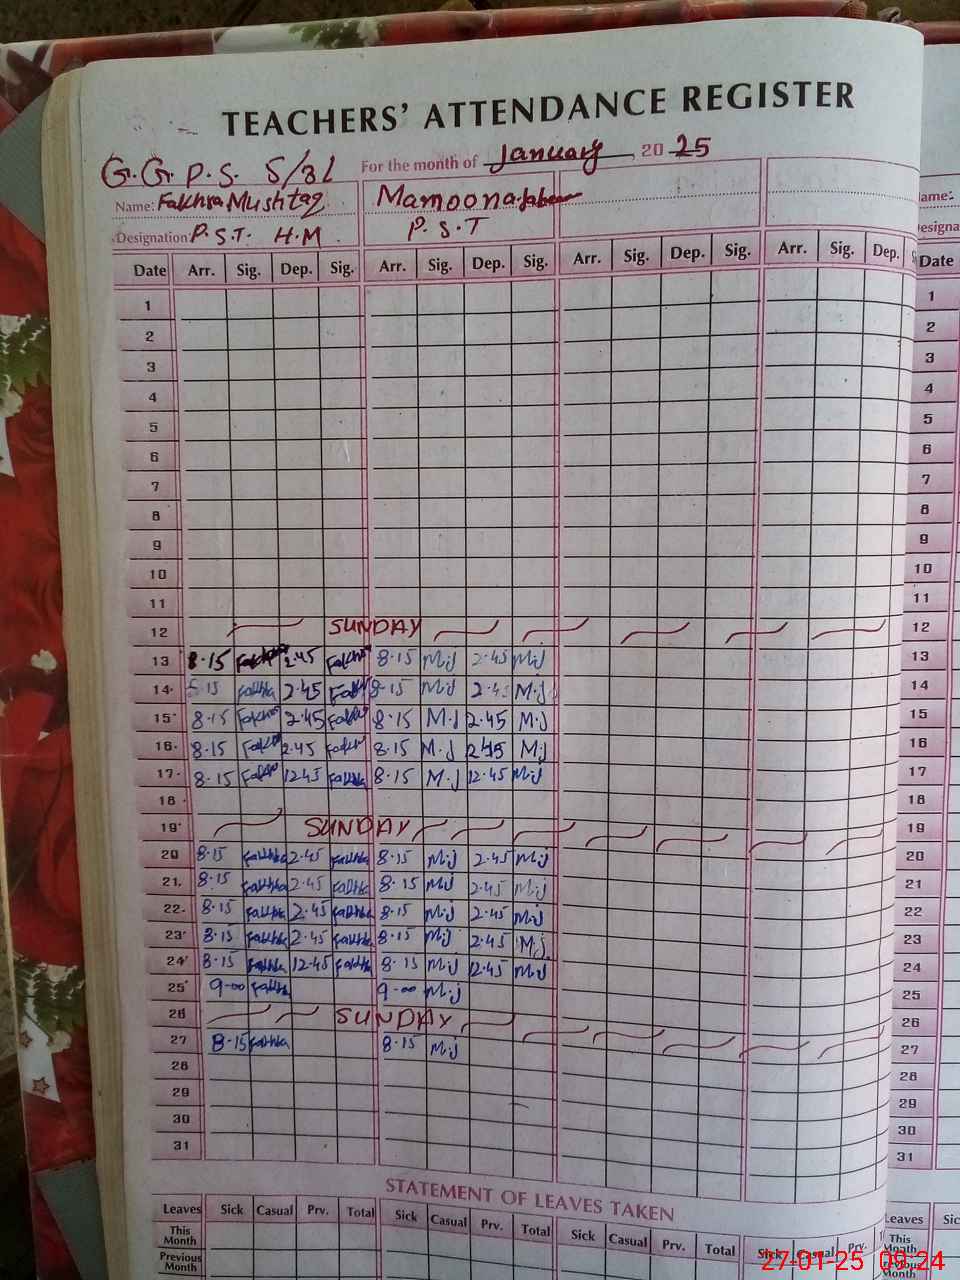 TEACHERS' ATTENDANCE REGISTER
G.G.P.S. 5/3L For the month of January, 20 25
Name: Fakhra Mushtaq Mamoona
Designation: P.S.T. H.M P.S.T
Date Arr. Sig. Dep. Sig. Arr. Sig. Dep. Sig. Arr. Sig. Dep. Sig. Arr. Sig. Dep. Date
1 1
2 2
3 3
4 4
5 5
6 6
7 7
8 8
9 9
10 10
11 11
12 SUNDAY 12
13 8.15 Fakhra 2.45 Fakhra 8.15 M.j 2.45 M.j 13
14 8.15 Fakhra 2.45 Fakhra 8.15 M.j 2.45 M.j 14
15 8.15 Fakhra 2.45 Fakhra 8.15 M.j 2.45 M.j 15
16 8.15 Fakhra 2.45 Fakhra 8.15 M.j 2.45 M.j 16
17 8.15 Fakhra 12.45 Fakhra 8.15 M.j 12.45 M.j 17
18 18
19 SUNDAY 19
20 8.15 Fakhra 2.45 Fakhra 8.15 M.j 2.45 M.j 20
21 8.15 Fakhra 2.45 Fakhra 8.15 M.j 2.45 M.j 21
22 8.15 Fakhra 2.45 Fakhra 8.15 M.j 2.45 M.j 22
23 8.15 Fakhra 2.45 Fakhra 8.15 M.j 2.45 M.j 23
24 8.15 Fakhra 12.45 Fakhra 8.15 M.j 12.45 M.j 24
25 9-00 Fakhra 9-00 M.j 25
26 SUNDAY 26
27 8.15 Fakhra 8.15 M.j 27
28 28
29 29
30 30
31 31
STATEMENT OF LEAVES TAKEN
Leaves Sick Casual Prv. Total Sick Casual Prv. Total Sick Casual Prv. Total Sick Casual Prv. Leaves
This Month This Month
Previous Month Previous Month
27-01-25 09:24